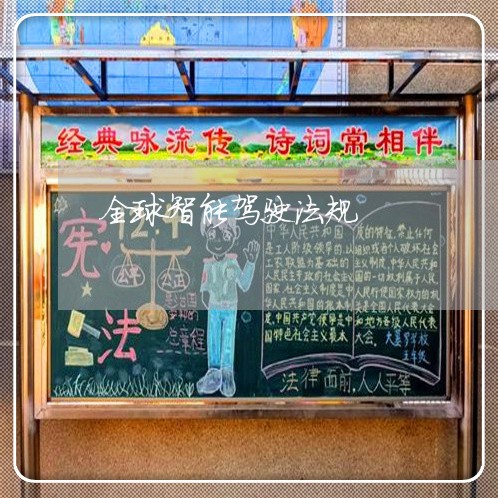 经典咏流传 诗词常相伴
全球智能驾驶法规
12.4
宪
法
公平 公正
总章程
中华人民共和国
是工人阶级领导的,以
工农联盟为基础的
人民民主专政的社会主义
国家,社会主义制度是中
华人民共和国的根本制
度,中国共产党领导是中
国特色社会主义最本
质的特征,禁止任何
组织或者个人破坏社会
主义制度,中华人民共和
国的一切权利属于人民,
人民行使国家权力的机
关是全国人民代表大会
和地方各级人民代表
大会。
五年级
法律面前,人人平等